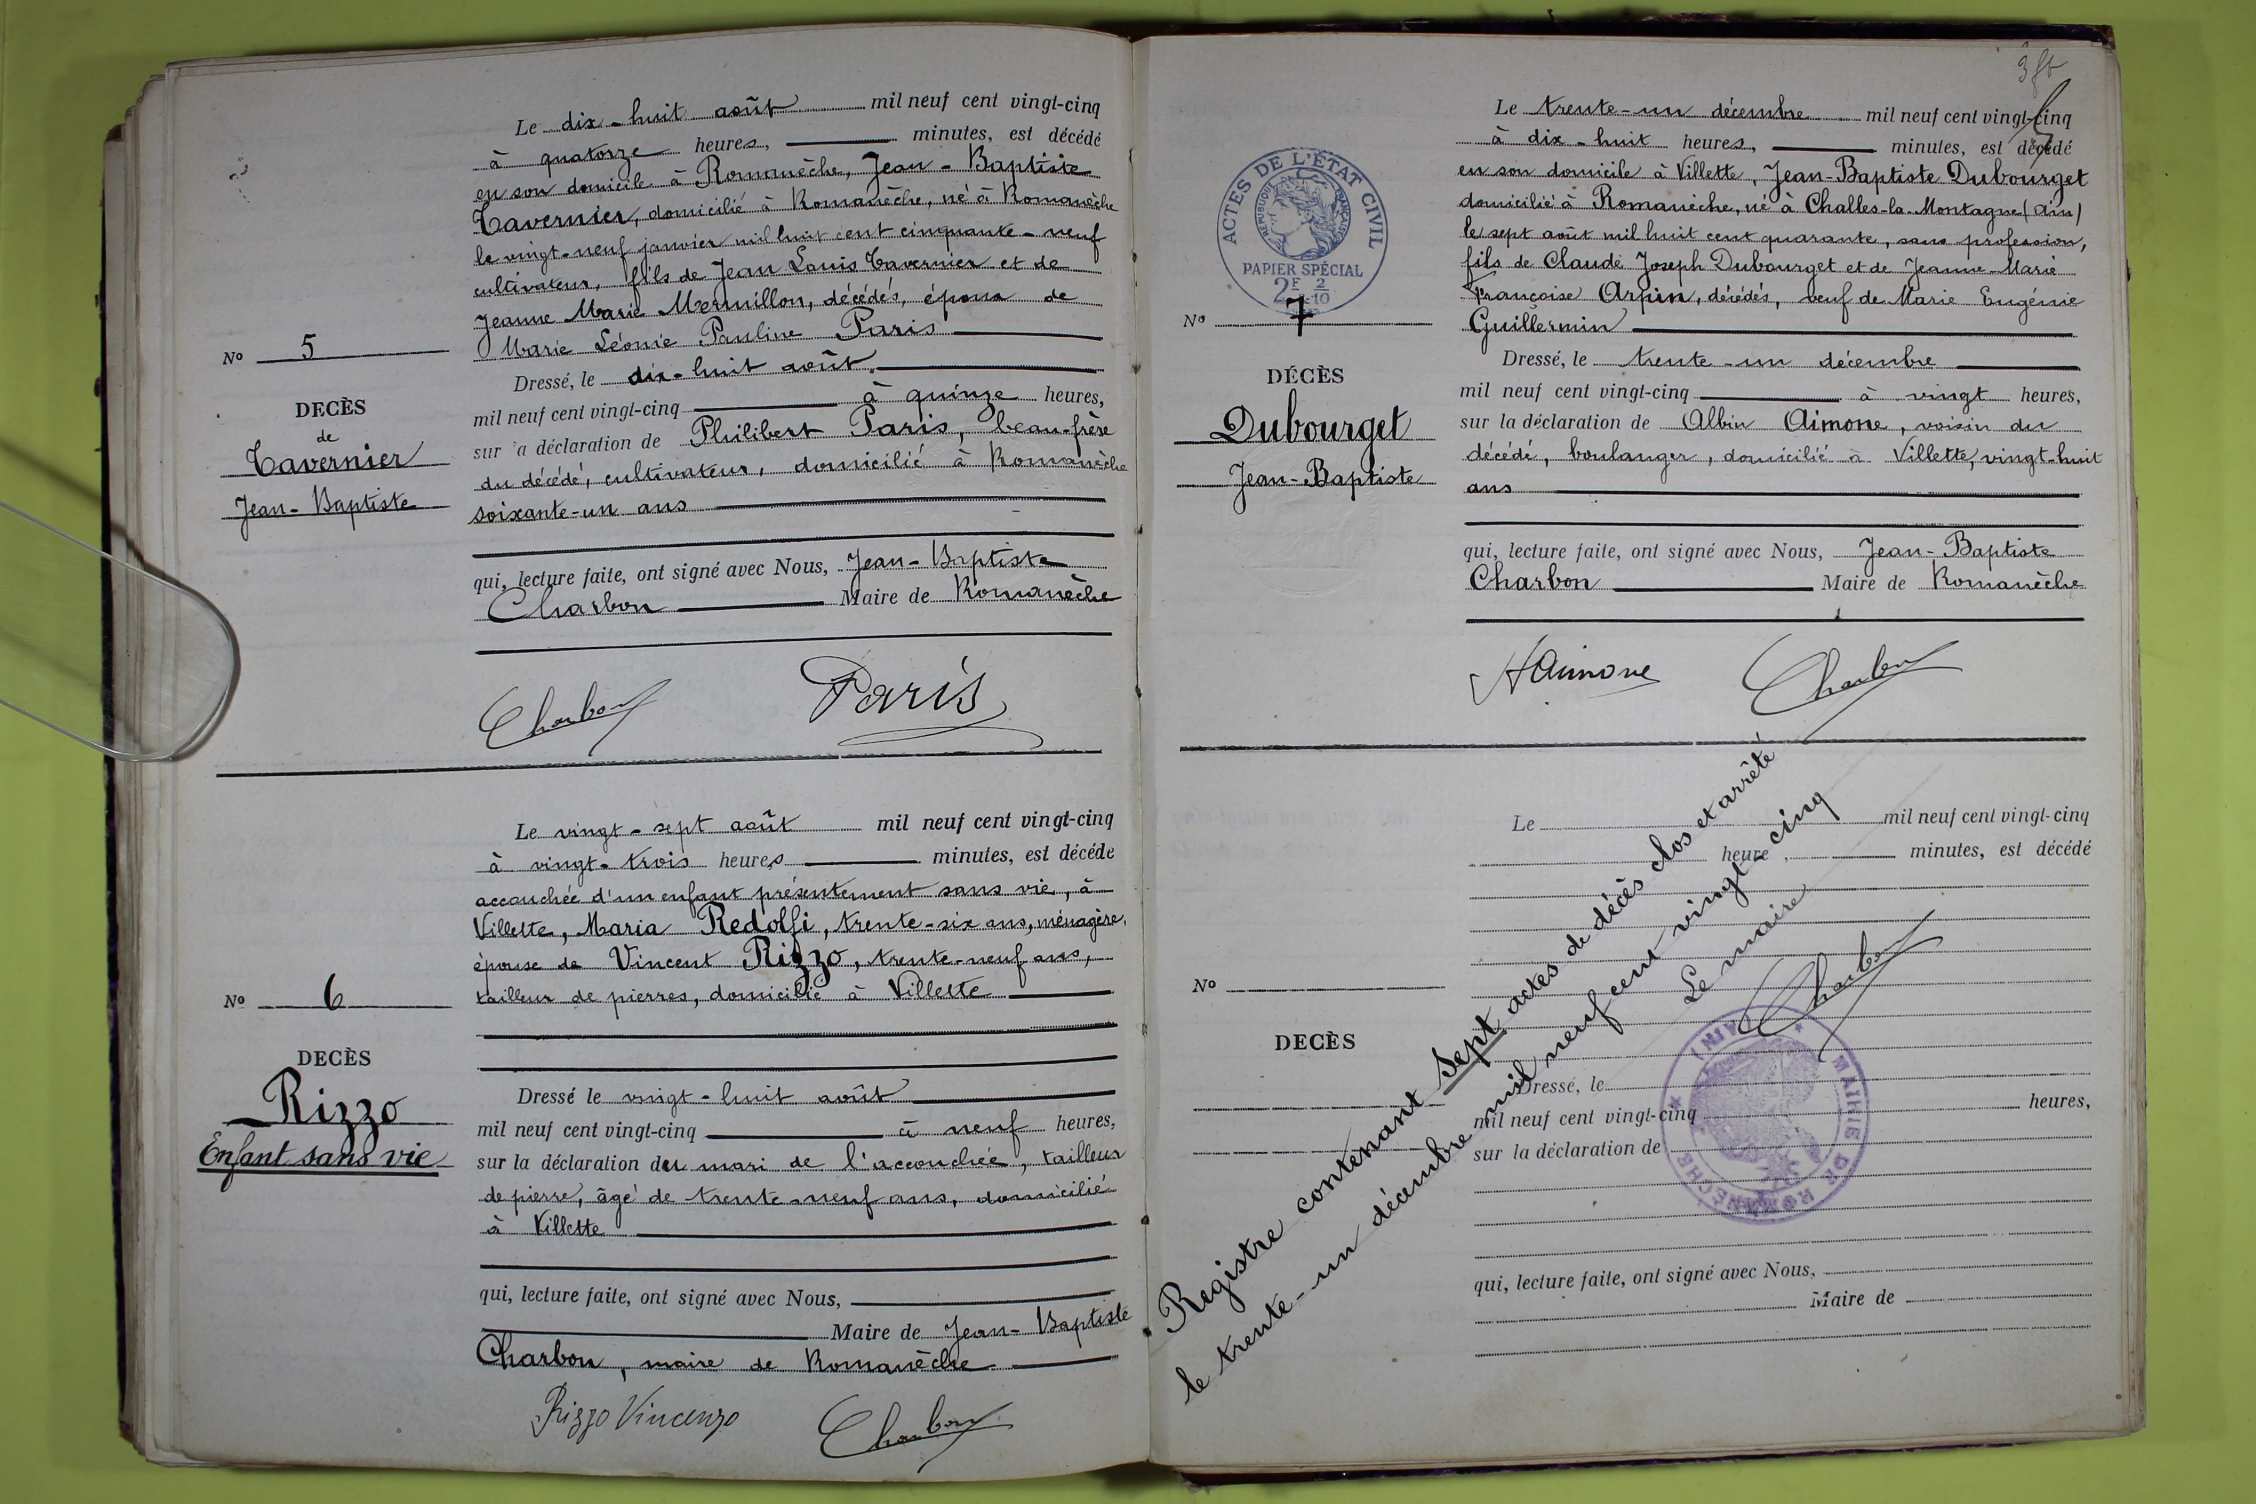 Le dix-huit août mil neuf cent vingt-cinq
à quatorze heures, minutes, est décédé
en son domicile à Romanèche, Jean-Baptiste
Tavernier, domicilié à Romanèche, né à Romanèche
le vingt-neuf janvier mil huit cent cinquante-neuf
cultivateur, fils de Jean Louis Tavernier et de
Jeanne Marie Mermillon, décédés, époux de
Marie Léonie Pauline Paris
No 5
DECÈS
de
Tavernier
Jean-Baptiste
Dressé, le dix-huit août
mil neuf cent vingt-cinq à quinze heures,
sur a déclaration de Philibert Paris, beau-frère
du décédé, cultivateur, domicilié à Romanèche
soixante-un ans
qui, lecture faite, ont signé avec Nous, Jean-Baptiste
Charbon Maire de Romanèche
Charbon Paris
Le vingt-sept août mil neuf cent vingt-cinq
à vingt-trois heures minutes, est décédé
accouchée d'un enfant présentement sans vie, à
Villette, Maria Redolfi, trente-six ans, ménagère,
épouse de Vincent Rizzo, trente-neuf ans,
tailleur de pierres, domicilié à Villette
No 6
DECÈS
Rizzo
Enfant sans vie
Dressé le vingt-huit août
mil neuf cent vingt-cinq à neuf heures,
sur la déclaration du mari de l'accouchée, tailleur
de pierre, âgé de trente-neuf ans, domicilié
à Villette
qui, lecture faite, ont signé avec Nous,
Maire de Jean-Baptiste
Charbon, maire de Romanèche
Rizzo Vincenzo Charbon
ACTES DE L'ÉTAT CIVIL
RÉPUBLIQUE FRANÇAISE
PAPIER SPÉCIAL
2F 2/10
No 7
DÉCÈS
Dubourget
Jean-Baptiste
Le trente-un décembre mil neuf cent vingt-cinq
à dix-huit heures, minutes, est décédé
en son domicile à Villette, Jean-Baptiste Dubourget
domicilié à Romanèche, né à Challes-la-Montagne (Ain)
le sept août mil huit cent quarante, sans profession,
fils de Claude Joseph Dubourget et de Jeanne-Marie
Françoise Arpin, décédés, veuf de Marie Eugénie
Guillermin
Dressé, le trente-un décembre
mil neuf cent vingt-cinq à vingt heures,
sur la déclaration de Albin Aimone, voisin du
décédé, boulanger, domicilié à Villette, vingt-huit
ans
qui, lecture faite, ont signé avec Nous, Jean-Baptiste
Charbon Maire de Romanèche
A Aimone Charbon
Le mil neuf cent vingt-cinq
heure , minutes, est décédé
No
DECÈS
Dressé, le
mil neuf cent vingt-cinq heures,
sur la déclaration de
qui, lecture faite, ont signé avec Nous,
Maire de
Registre contenant sept actes de décès clos et arrêté
le trente-un décembre mil neuf cent vingt-cinq
Le maire
Charbon
MAIRIE DE ROMANÈCHE (AIN)